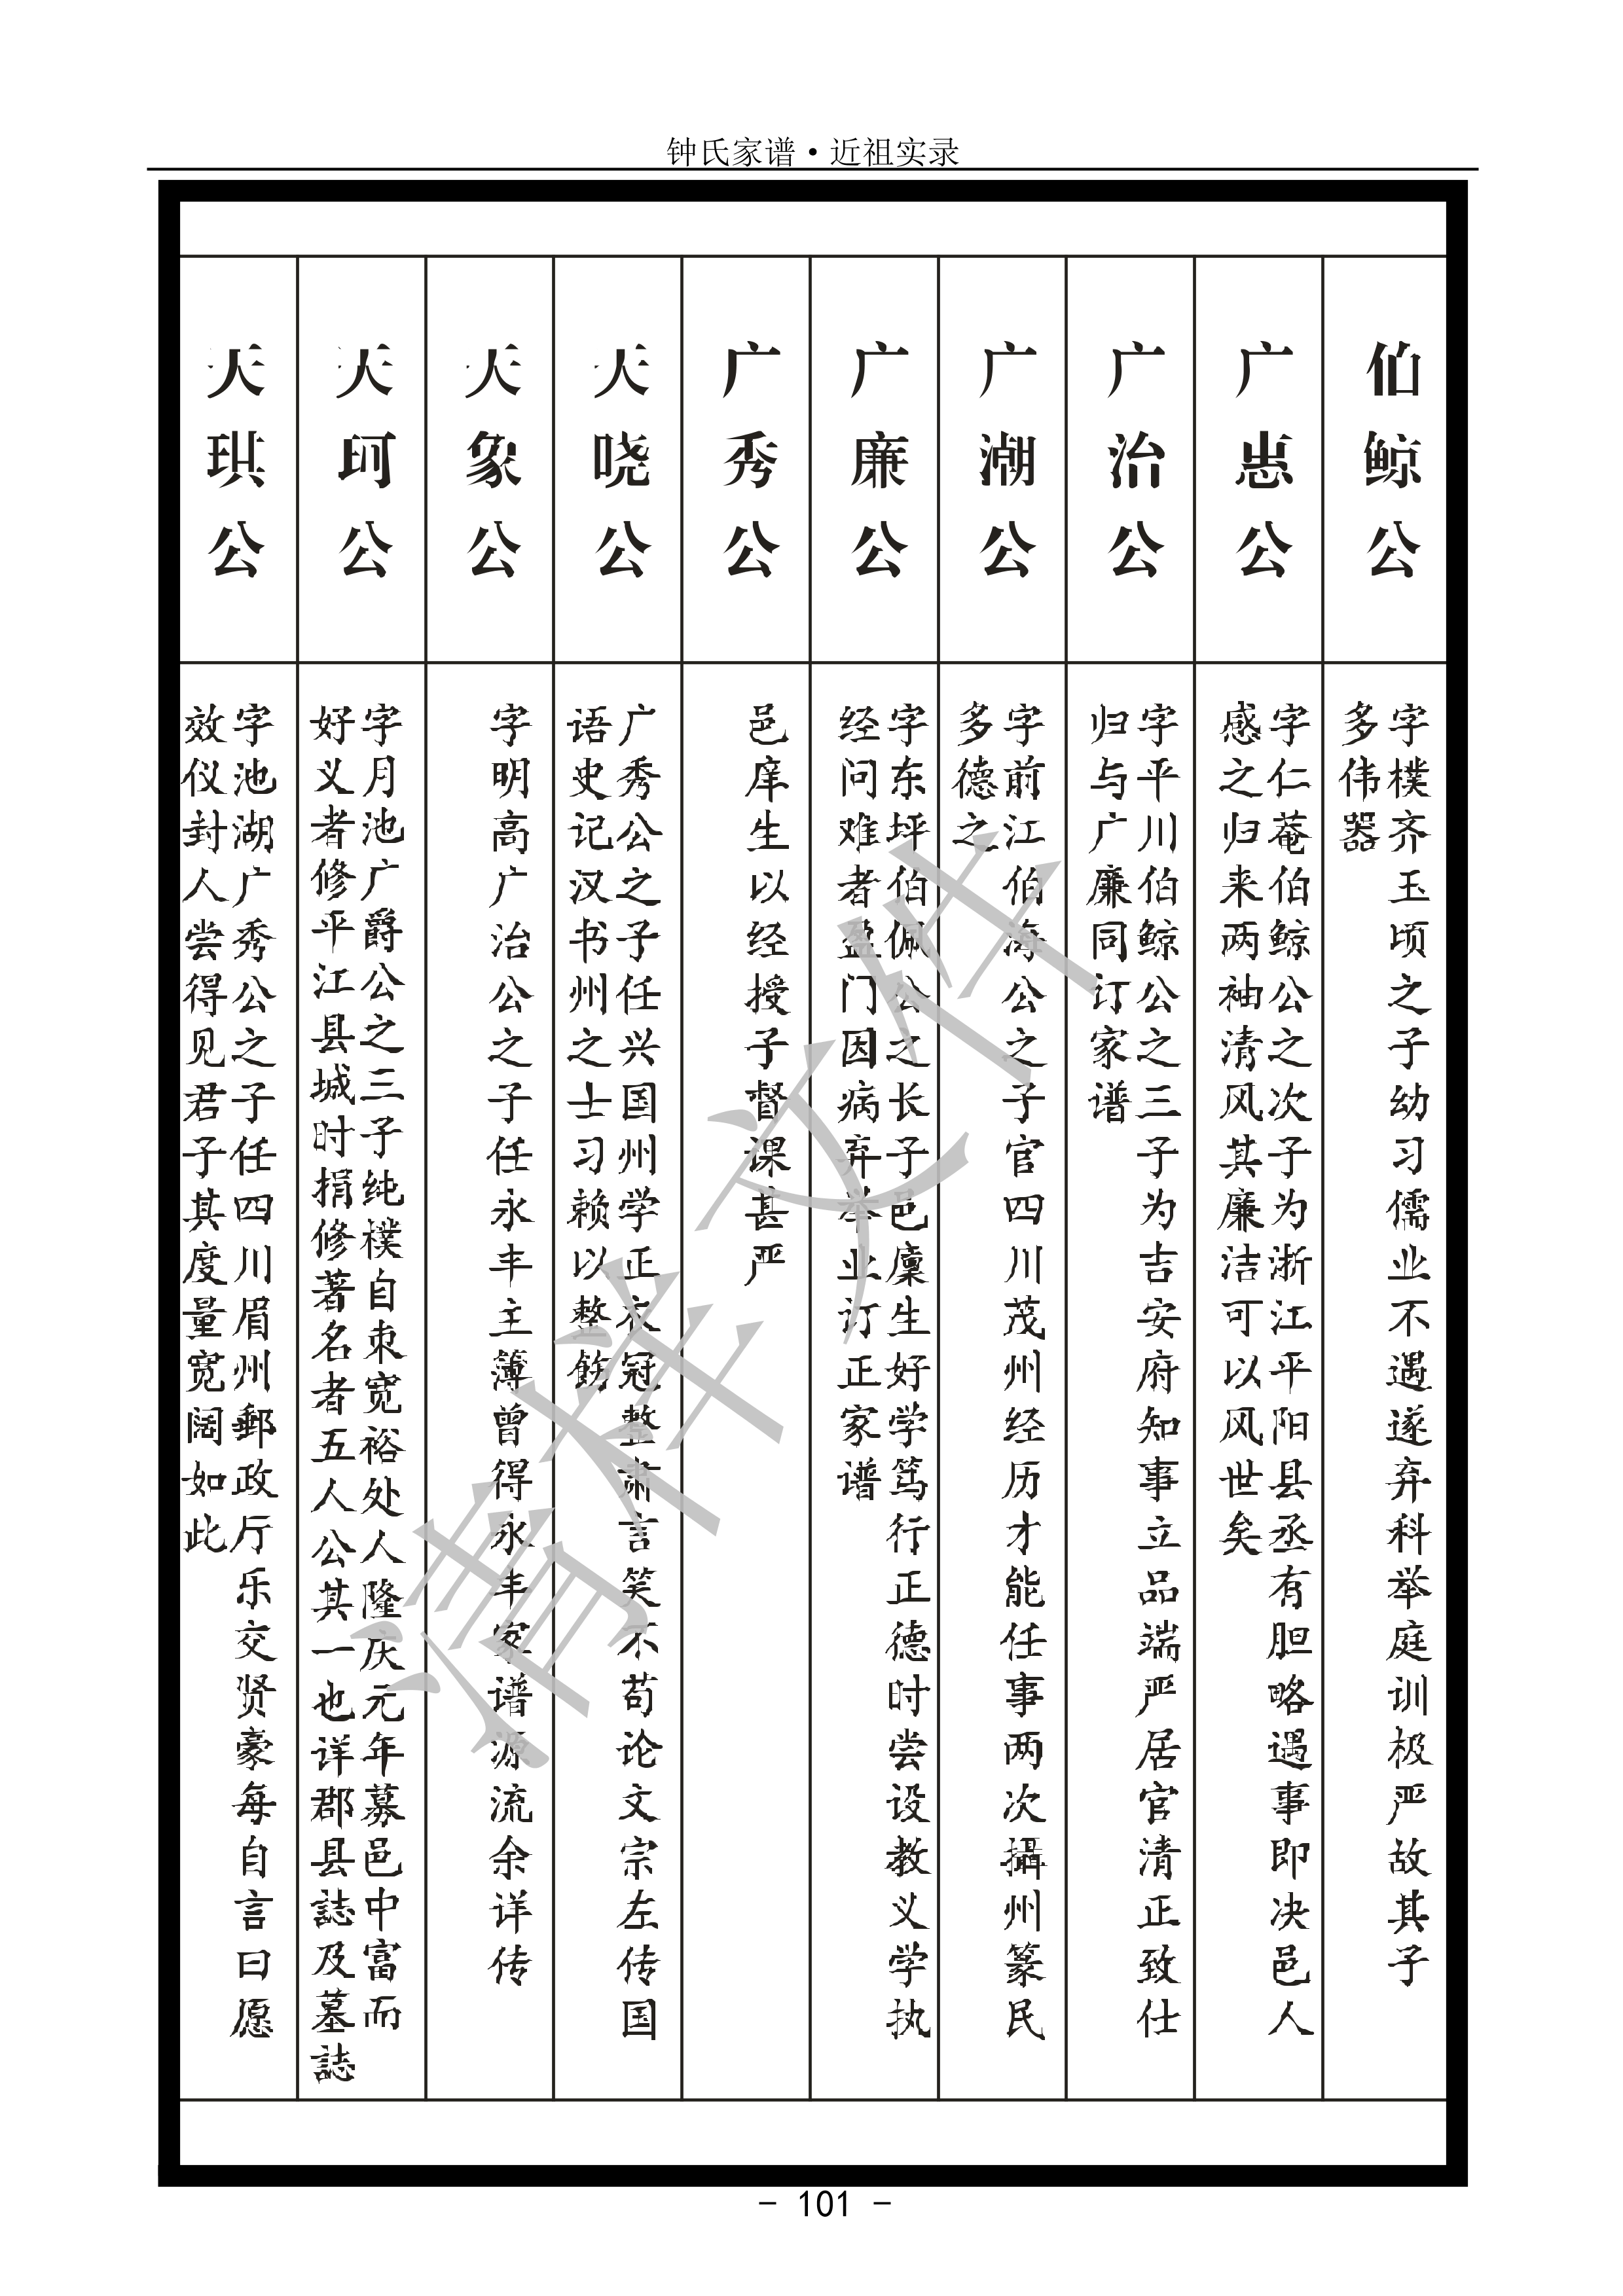 钟氏家谱·近祖实录
伯鲸公
字樸齐玉顷之子幼习儒业不遇遂弃科举庭训极严故其子
多伟器
广惠公
字仁菴伯鲸公之次子为浙江平阳县丞有胆略遇事即决邑人
感之归来两袖清风其廉洁可以风世矣
广治公
字平川伯鲸公之三子为吉安府知事立品端严居官清正致仕
归与广廉同订家谱
广潮公
字前江伯海公之子官四川茂州经历才能任事两次攝州篆民
多德之
广廉公
字东坪伯佩公之长子邑廩生好学笃行正德时尝设教义学执
经问难者盈门因病弃举业订正家谱
广秀公
邑庠生以经授子督课甚严
天晓公
广秀公之子任兴国州学正衣冠整肃言笑不苟论文宗左传国
语史记汉书州之士习赖以整飭
天象公
字明高广治公之子任永丰主簿曾得永丰家谱源流余详传
天珂公
字月池广爵公之三子纯樸自朿宽裕处人隆庆元年募邑中富而
好义者修平江县城时捐修著名者五人公其一也详郡县誌及墓誌
天琪公
字池湖广秀公之子任四川眉州郵政厅乐交贤豪每自言曰愿
效仪封人尝得见君子其度量宽阔如此
清样文件
- 101 -